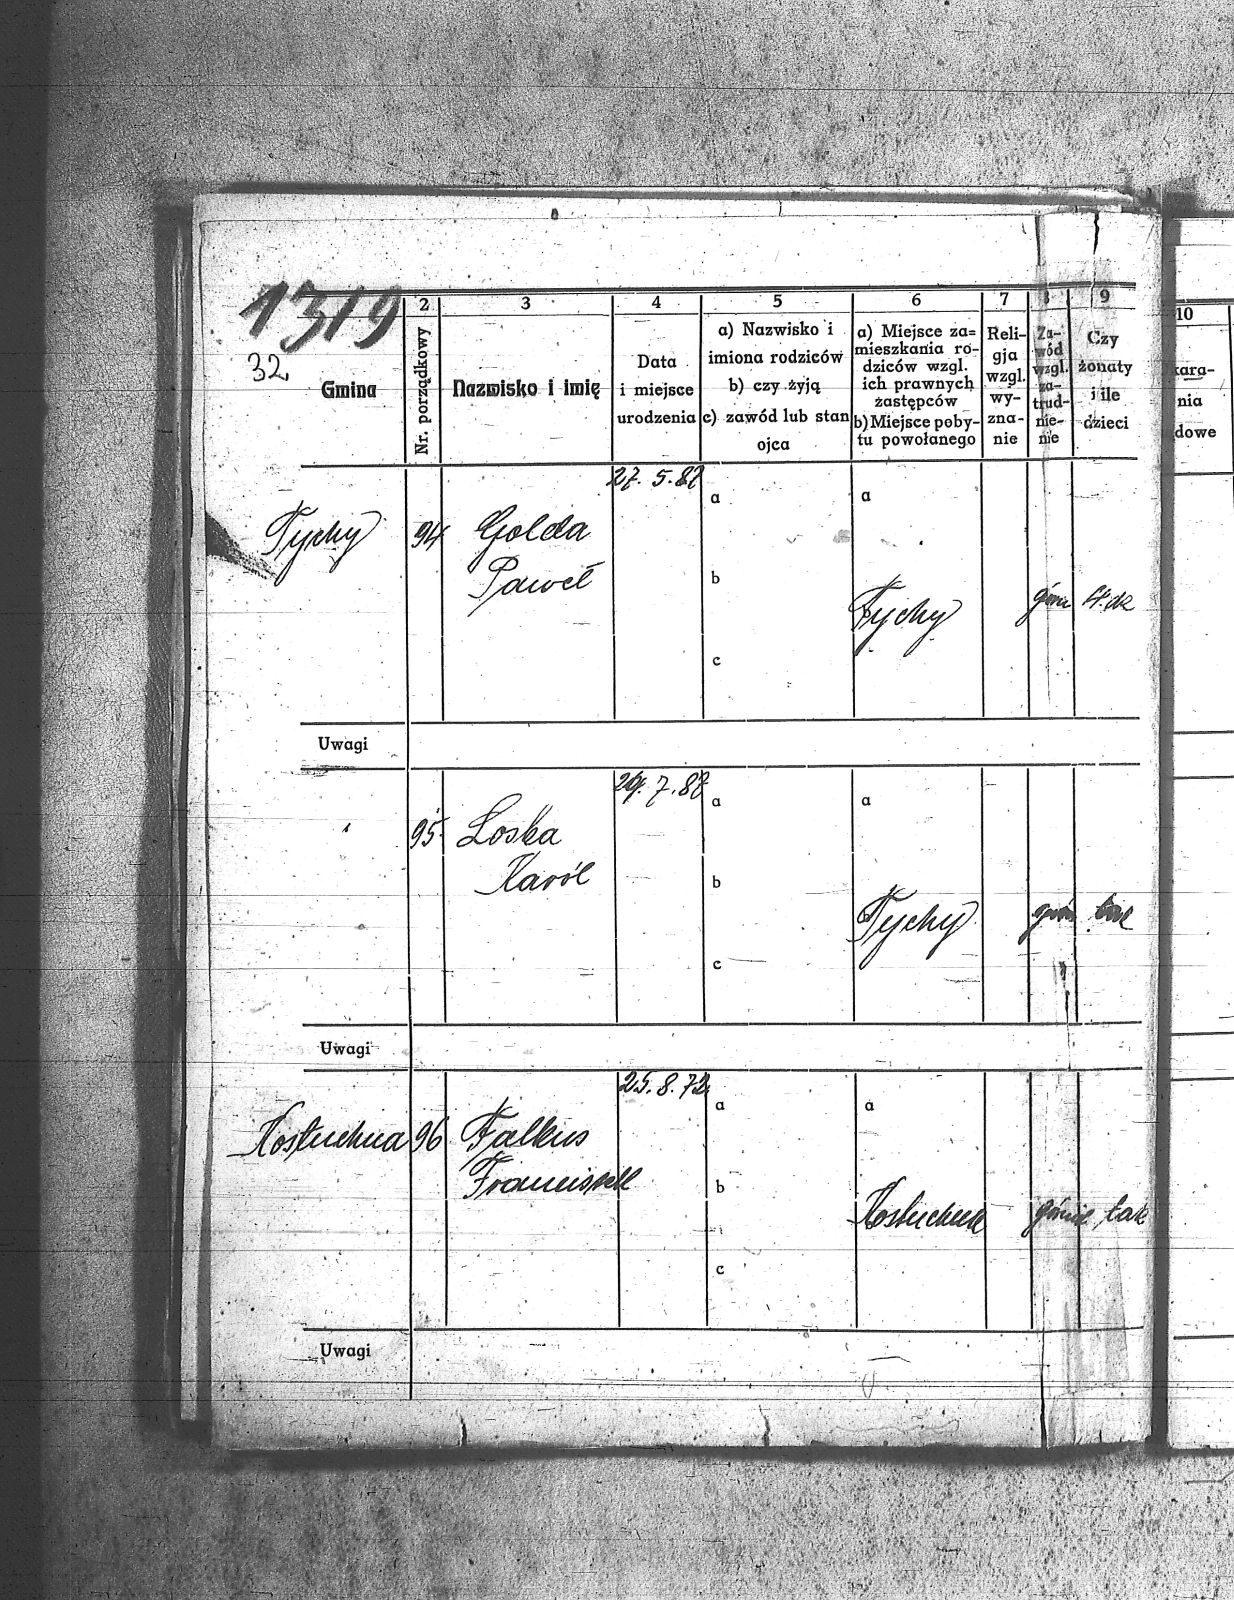 1319
32
2 3 4 5 6 7 8 9
10
Gmina
Nr. porządkowy
Nazwisko i imię
Data
i miejsce
urodzenia
a) Nazwisko i
imiona rodziców
b) czy żyją
c) zawód lub stan
ojca
a) Miejsce za=
mieszkania ro-
dziców wzgl.
ich prawnych
zastępców
b) Miejsce poby-
tu powołanego
Reli-
gja
wzgl.
wy-
zna-
nie
Za-
wód
wzgl.
za-
trud-
nie-
nie
Czy
żonaty
i ile
dzieci
kara-
nia
dowe
27. 5. 87
a a
Tychy 94 Golda
Paweł
b
Tychy 4. dz
c
Uwagi
29. 7. 88
a a
" 95 Loska
Karól
b
Tychy górn tak
c
Uwagi
25. 8. 72
a a
Kostuchna 96 Falkus
Franciszek
b
Kostuchna górnik tak
c
Uwagi